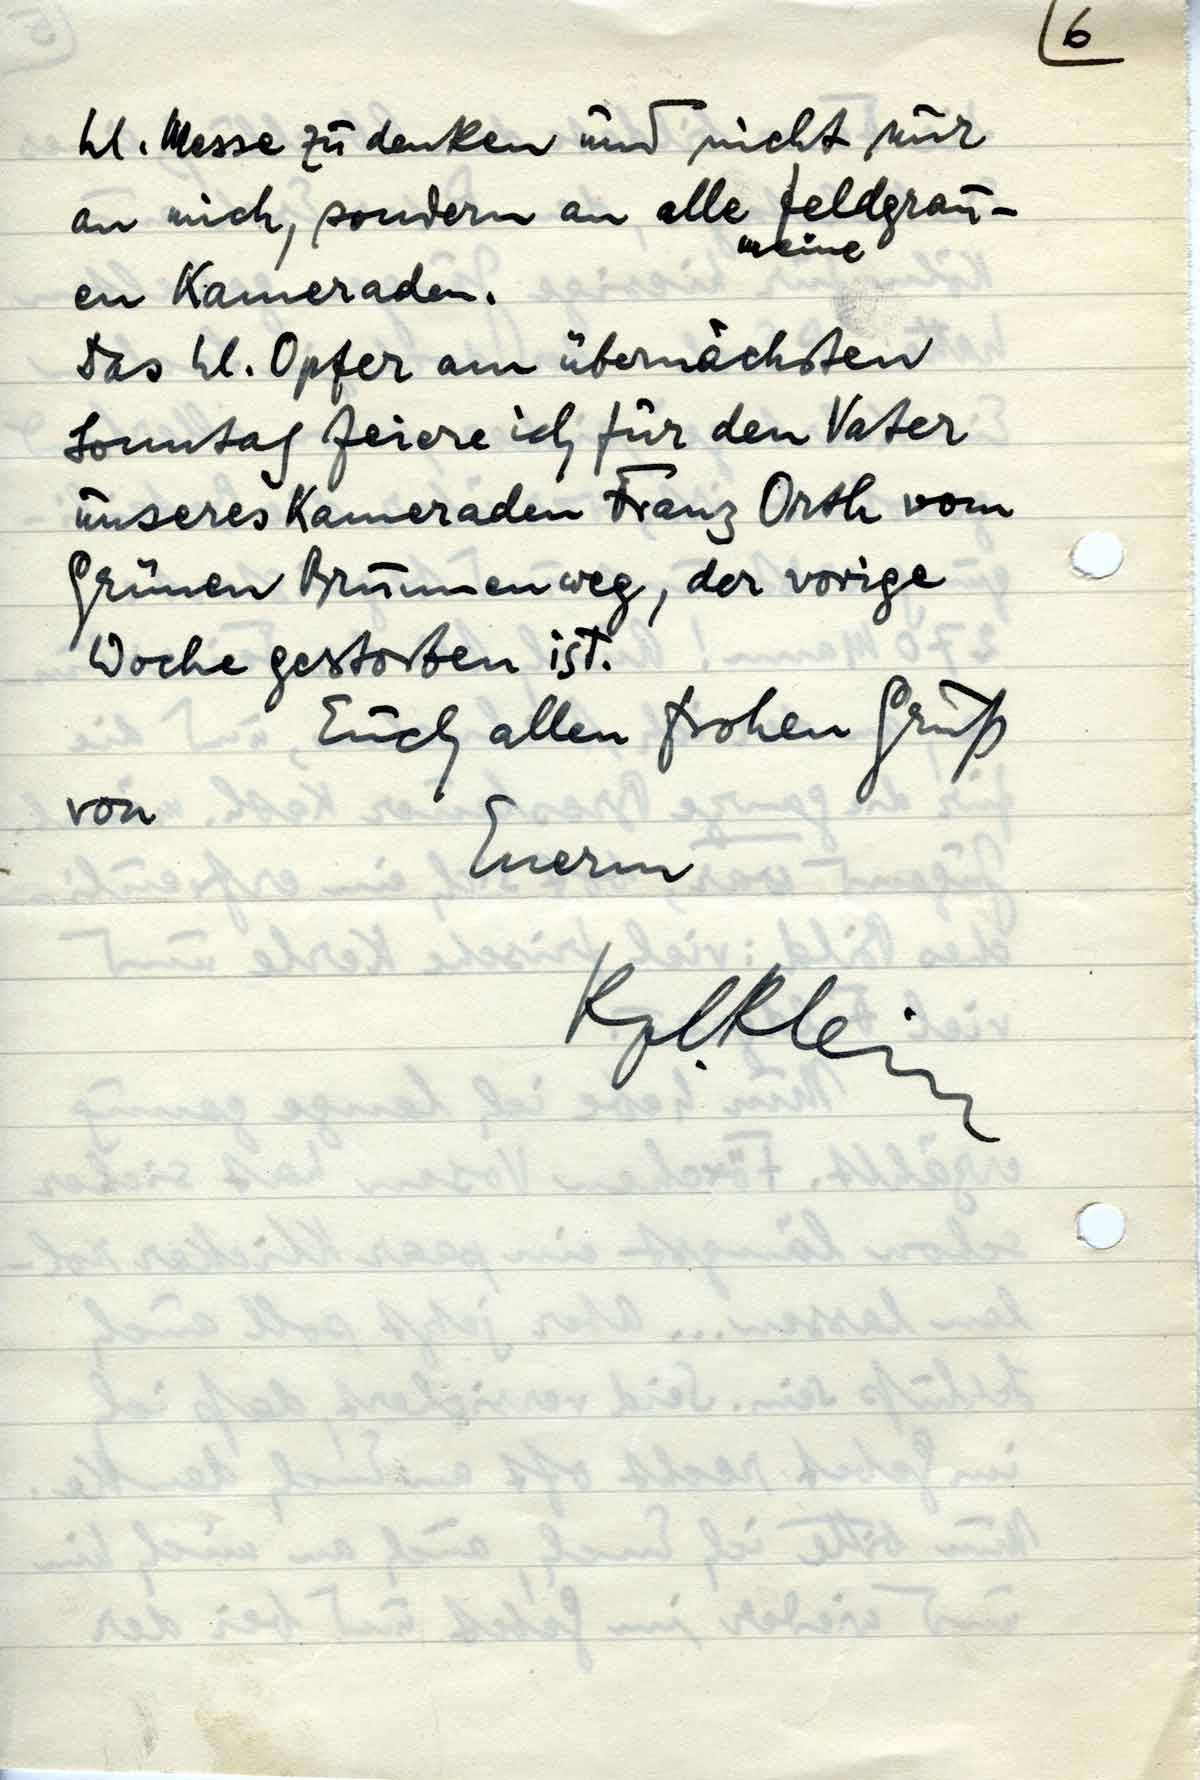 6
hl. Messe zu denken und nicht nur
an mich, sondern an alle feldgrau-
meine
en Kameraden.
Das hl. Opfer am übernächsten
Sonntag feiere ich für den Vater
unseres Kameraden Franz Orth vom
Grünen Brunnenweg, der vorige
Woche gestorben ist.
Euch allen frohen Gruß
von
Euerm
Kpl. Klein